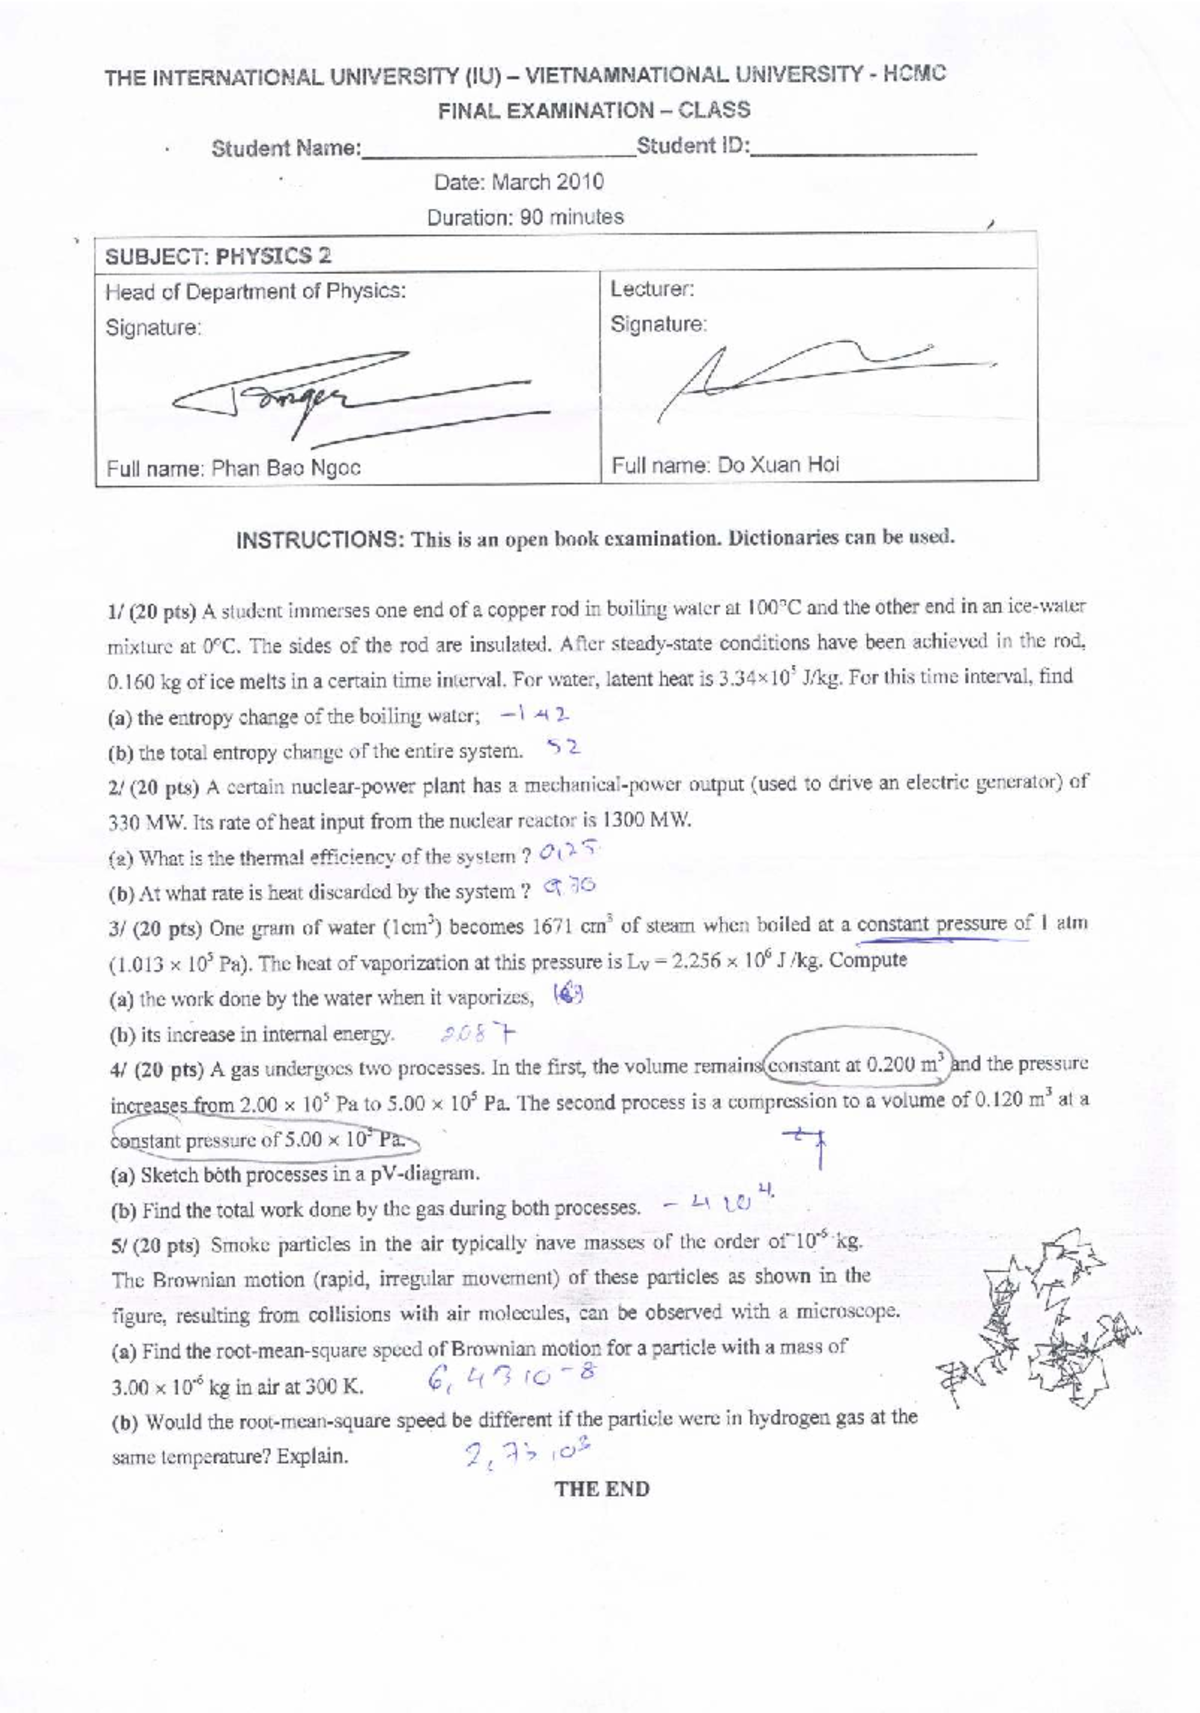 THE INTERNATIONAL UNIVERSITY (IU) – VIETNAMNATIONAL UNIVERSITY - HCMC
FINAL EXAMINATION – CLASS
Student Name: Student ID:
Date: March 2010
Duration: 90 minutes
SUBJECT: PHYSICS 2
Head of Department of Physics:
Signature:
Full name: Phan Bao Ngoc
Lecturer:
Signature:
Full name: Do Xuan Hoi
INSTRUCTIONS: This is an open book examination. Dictionaries can be used.
1/ (20 pts) A student immerses one end of a copper rod in boiling water at 100°C and the other end in an ice-water
mixture at 0°C. The sides of the rod are insulated. After steady-state conditions have been achieved in the rod,
0.160 kg of ice melts in a certain time interval. For water, latent heat is 3.34×10⁵ J/kg. For this time interval, find
(a) the entropy change of the boiling water; -142
(b) the total entropy change of the entire system. 52
2/ (20 pts) A certain nuclear-power plant has a mechanical-power output (used to drive an electric generator) of
330 MW. Its rate of heat input from the nuclear reactor is 1300 MW.
(a) What is the thermal efficiency of the system ? 0,25
(b) At what rate is heat discarded by the system ? 970
3/ (20 pts) One gram of water (1cm³) becomes 1671 cm³ of steam when boiled at a constant pressure of 1 atm
(1.013 × 10⁵ Pa). The heat of vaporization at this pressure is Lv = 2.256 × 10⁶ J /kg. Compute
(a) the work done by the water when it vaporizes, 169
(b) its increase in internal energy. 2087
4/ (20 pts) A gas undergoes two processes. In the first, the volume remains constant at 0.200 m³ and the pressure
increases from 2.00 × 10⁵ Pa to 5.00 × 10⁵ Pa. The second process is a compression to a volume of 0.120 m³ at a
constant pressure of 5.00 × 10⁵ Pa.
(a) Sketch both processes in a pV-diagram.
(b) Find the total work done by the gas during both processes. - 4 10⁴
5/ (20 pts) Smoke particles in the air typically have masses of the order of 10⁻⁶ kg.
The Brownian motion (rapid, irregular movement) of these particles as shown in the
figure, resulting from collisions with air molecules, can be observed with a microscope.
(a) Find the root-mean-square speed of Brownian motion for a particle with a mass of
3.00 × 10⁻⁶ kg in air at 300 K. 6,43 10⁻⁸
(b) Would the root-mean-square speed be different if the particle were in hydrogen gas at the
same temperature? Explain. 2,73 10³
THE END